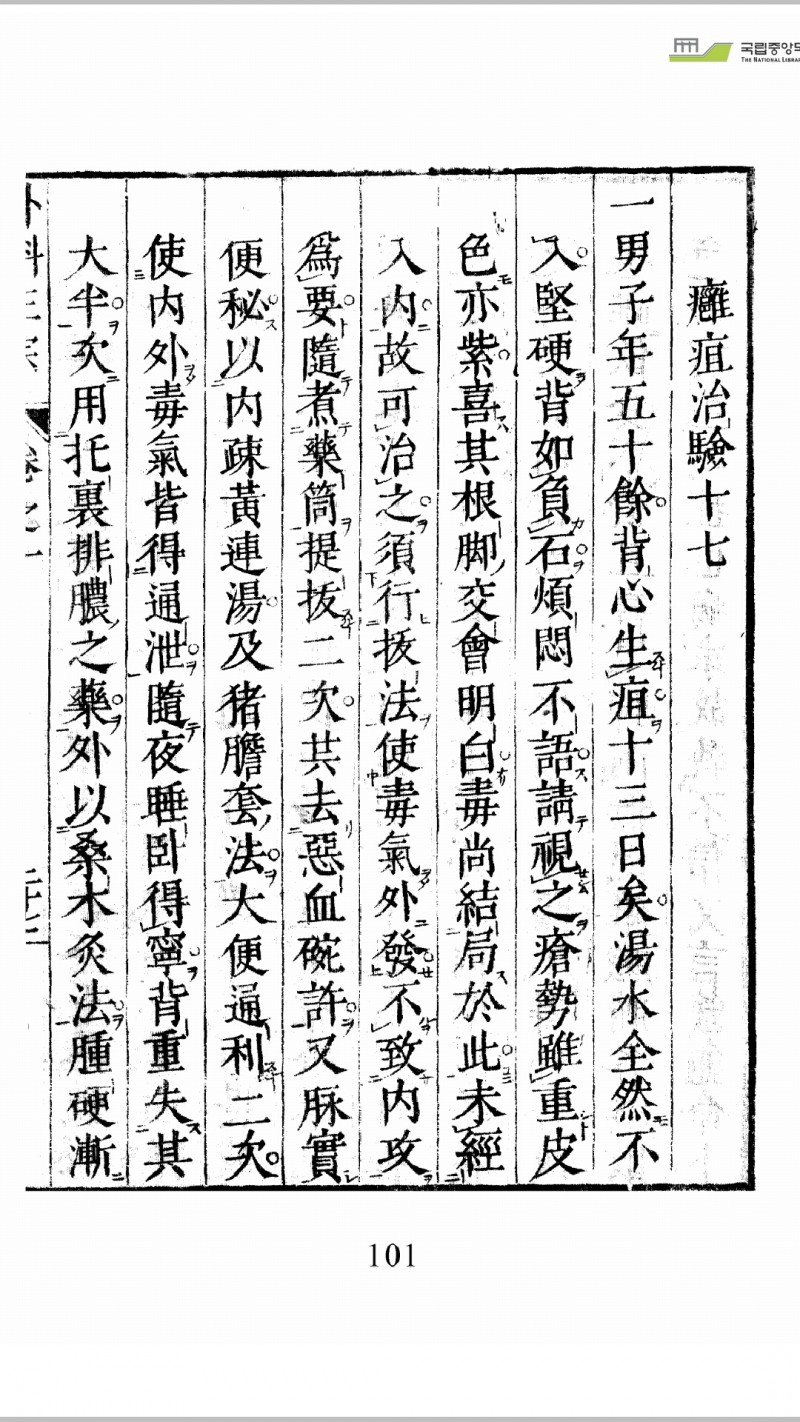 국립중앙도
THE NATIONAL LIBRA
癰疽治驗十七
一男子年五十餘背心生疽十三日矣湯水全然不
入堅硬背如負石煩悶不語請視之瘡勢雖重皮
色亦紫喜其根脚交會明白毒尚結局於此未經
入內故可治之須行拔法使毒氣外發不致內攻
為要隨煮藥筒提拔二次共去惡血碗許又脉實
便秘以內疎黃連湯及猪膽套法大便通利二次
使內外毒氣皆得通泄隨夜睡卧得寧背重失其
大半次用托裏排膿之藥外以桑木灸法腫硬漸
外科正宗 卷之一 二十三
101